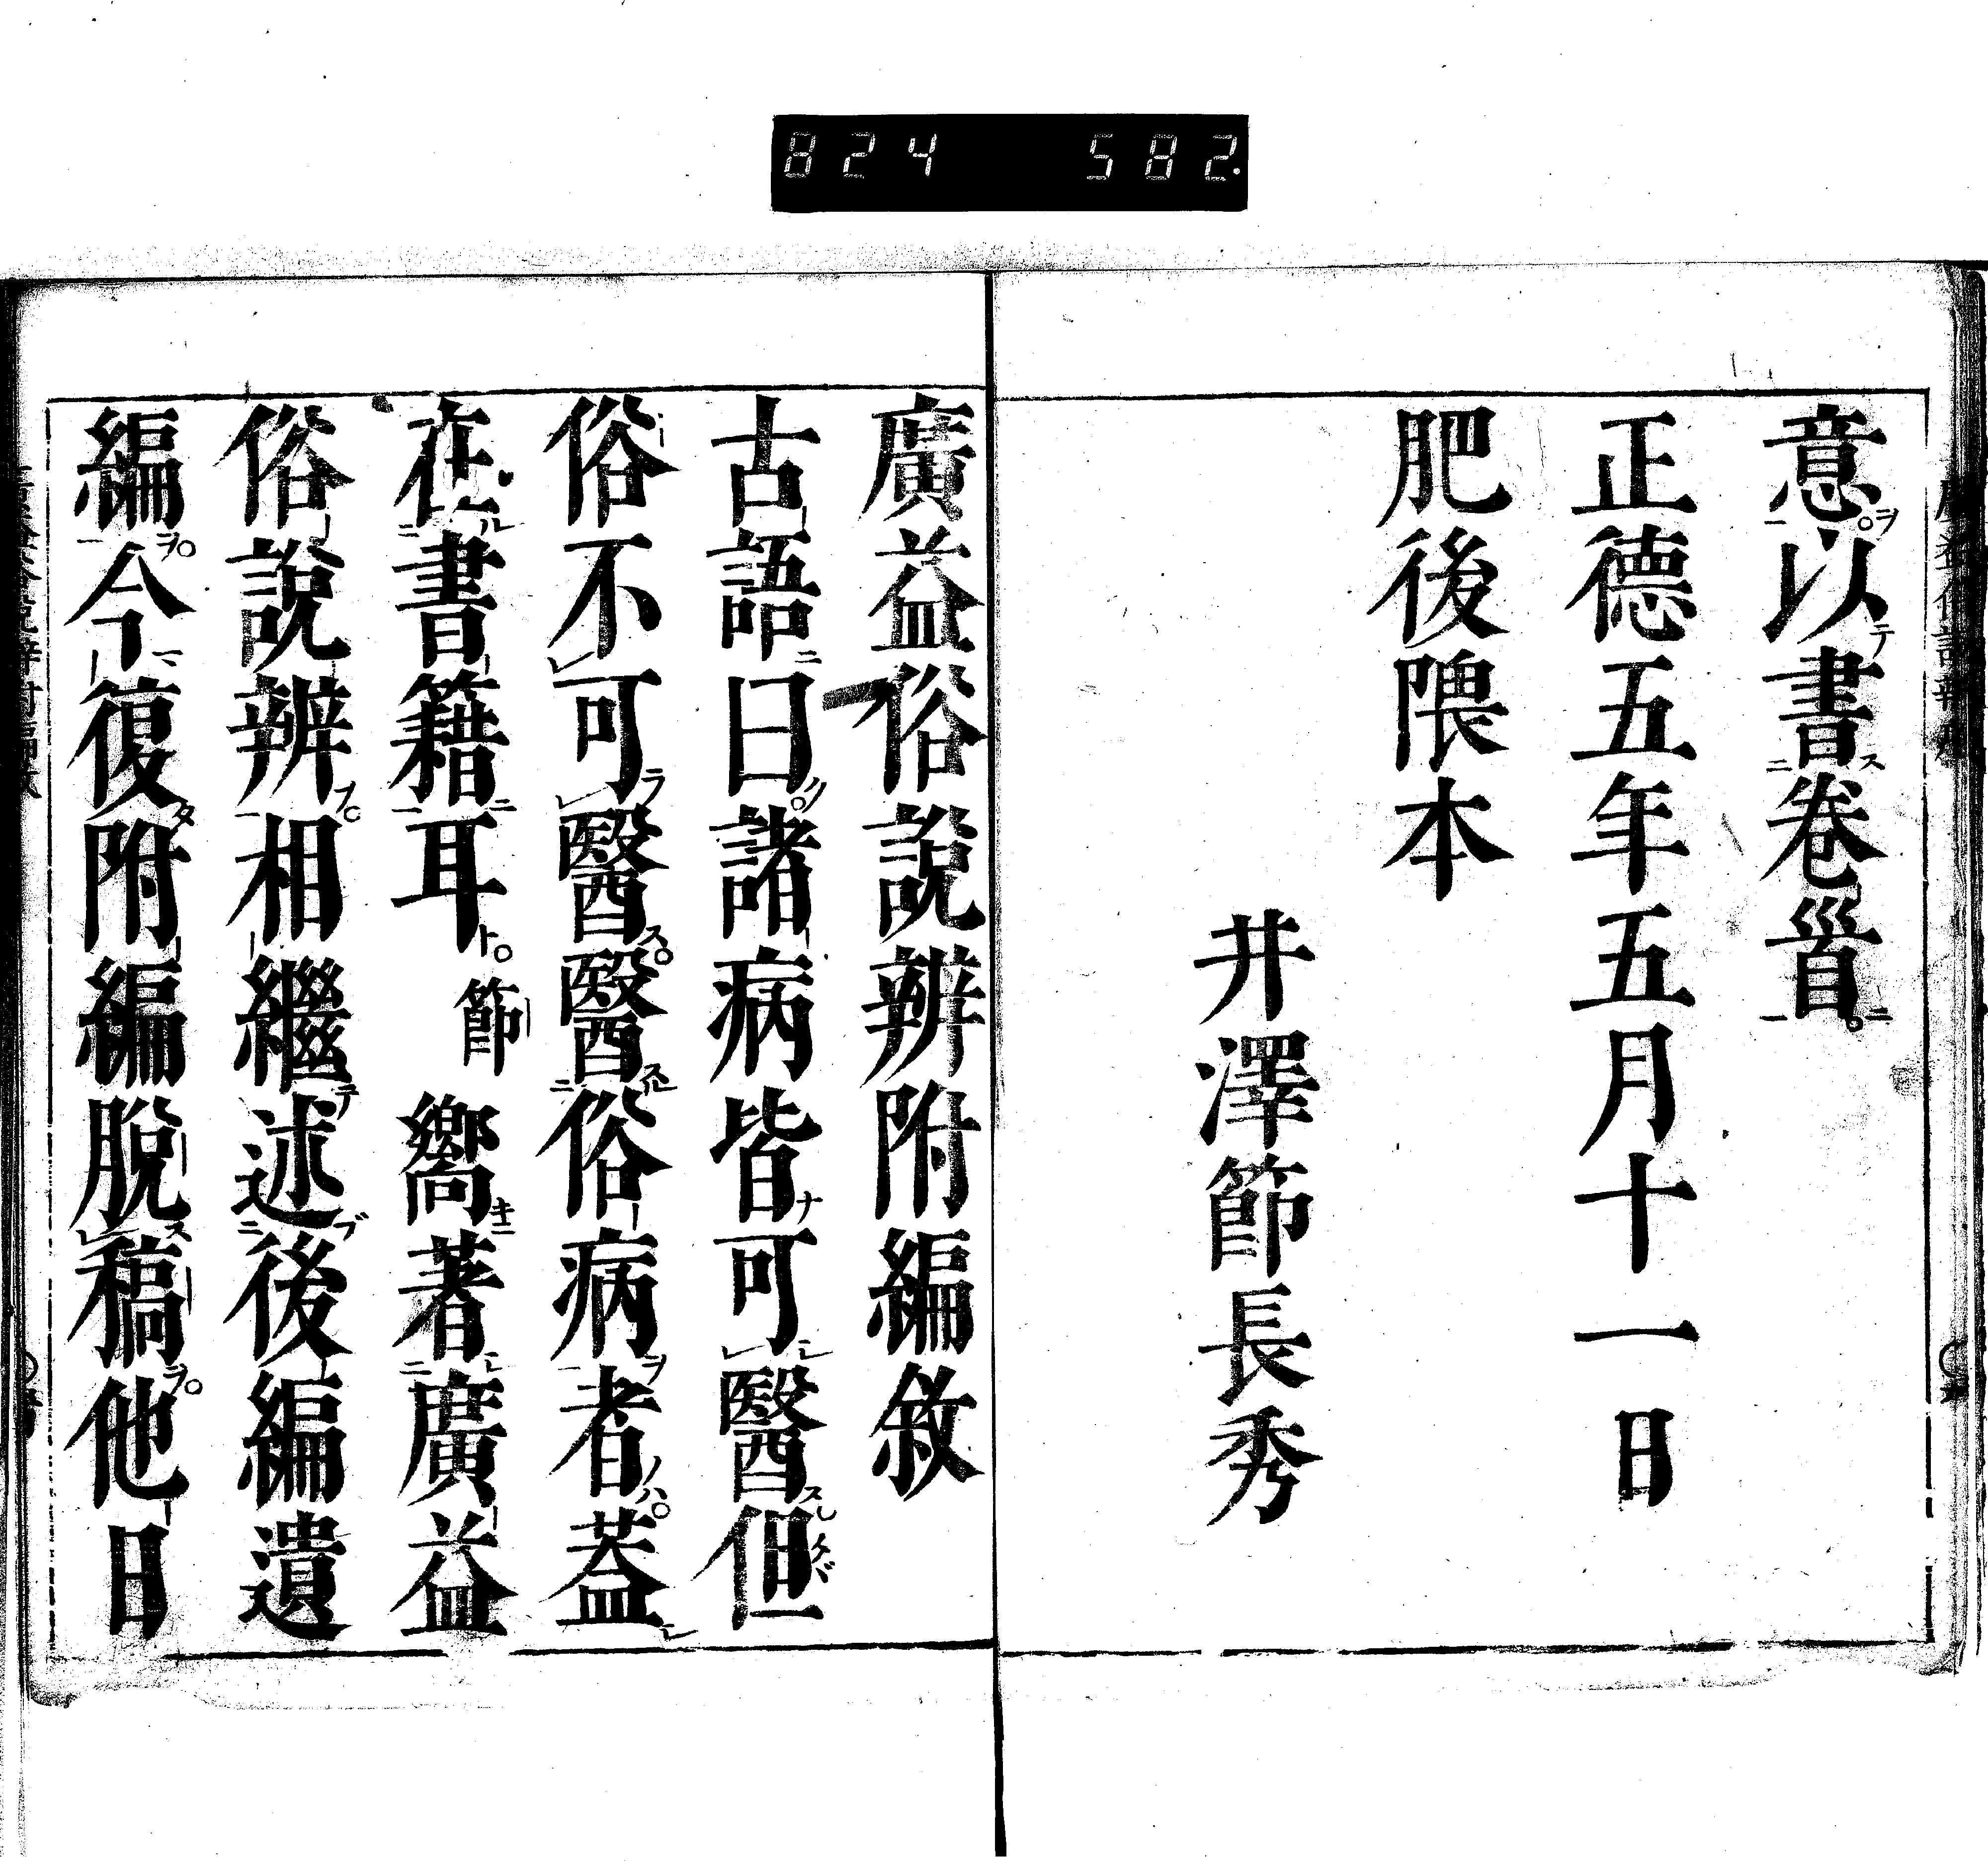 824 582.
意以書卷首
正德五年五月十一日
肥後隈本
井澤節長秀
廣益俗說辨附編敘
古語曰諸病皆可醫但
俗不可醫醫俗病者蓋
在書籍耳節嚮著廣益
俗說辨相繼述後編遺
編今復附編脫稿他日